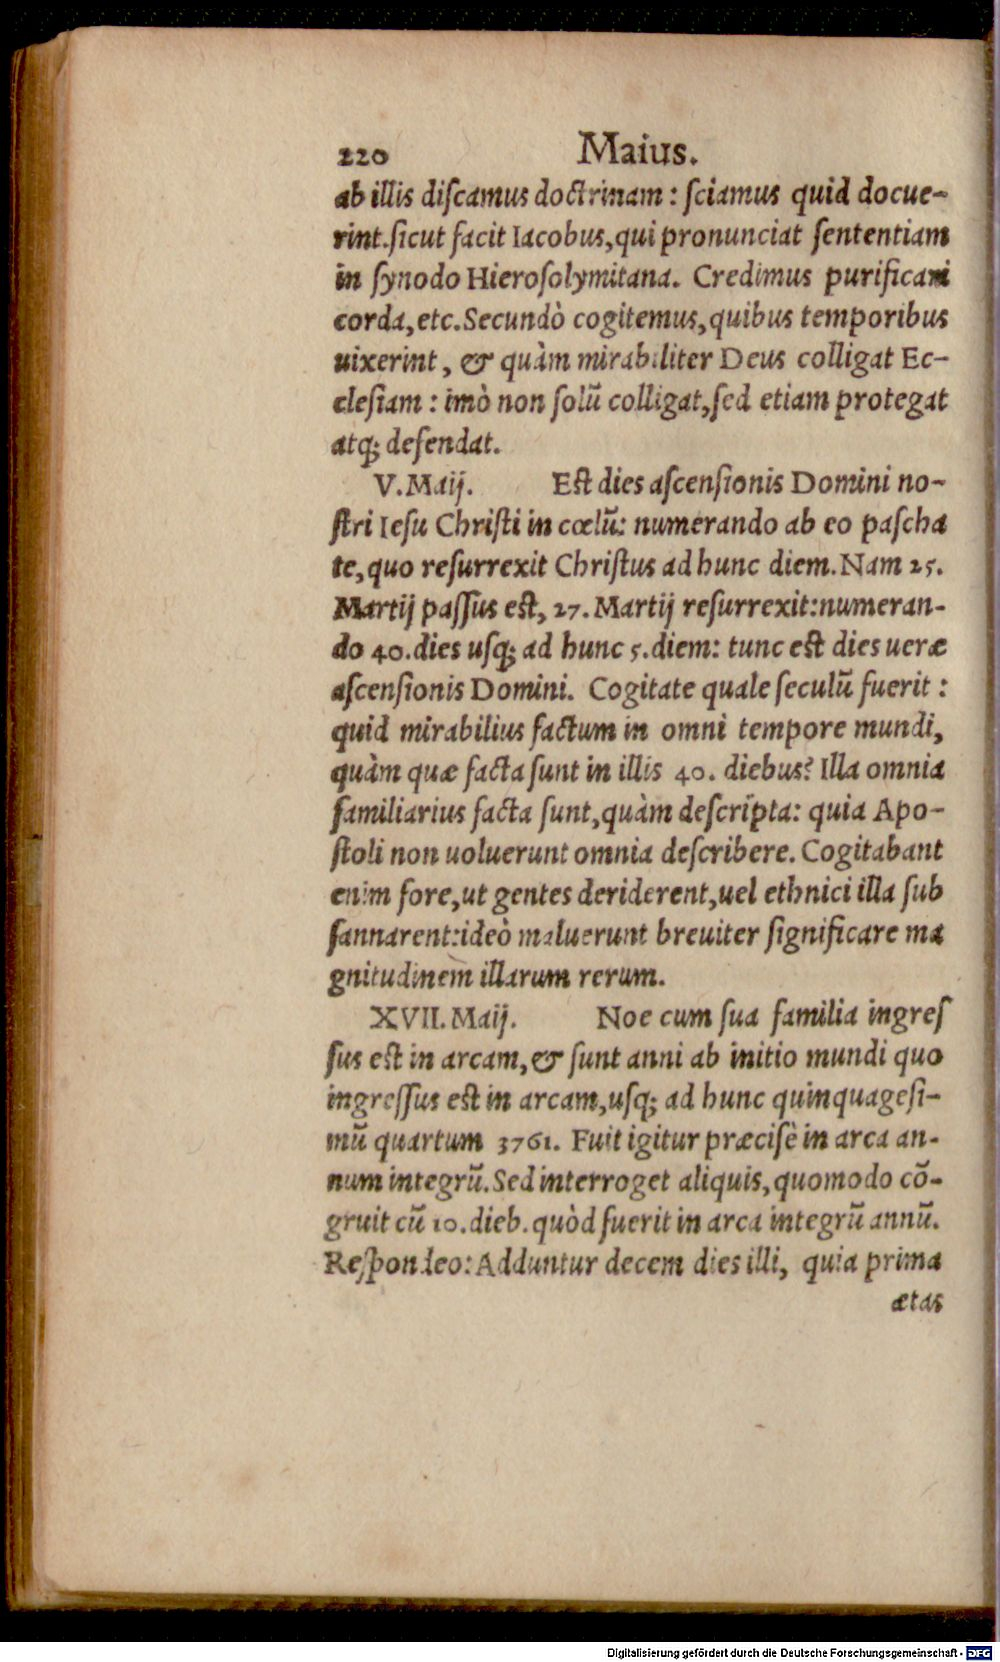 220 Maius.
ab illis discamus doctrinam : sciamus quid docue-
rint. sicut facit Iacobus, qui pronunciat sententiam
in synodo Hierosolymitana. Credimus purificari
corda, etc. Secundò cogitemus, quibus temporibus
uixerint, & quàm mirabiliter Deus colligat Ec-
clesiam : imò non solũ colligat, sed etiam protegat
atq; defendat.
V. Maij. Est dies ascensionis Domini no-
stri Iesu Christi in cœlũ: numerando ab eo pascha
te, quo resurrexit Christus ad hunc diem. Nam 25.
Martij passus est, 27. Martij resurrexit: numeran-
do 40. dies usq; ad hunc 5. diem: tunc est dies ueræ
ascensionis Domini. Cogitate quale seculũ fuerit :
quid mirabilius factum in omni tempore mundi,
quàm quæ facta sunt in illis 40. diebus? Illa omnia
familiarius facta sunt, quàm descripta: quia Apo-
stoli non uoluerunt omnia describere. Cogitabant
enim fore, ut gentes deriderent, uel ethnici illa sub
sannarent: ideò maluerunt breuiter significare ma
gnitudinem illarum rerum.
XVII. Maij. Noe cum sua familia ingres
sus est in arcam, & sunt anni ab initio mundi quo
ingressus est in arcam, usq; ad hunc quinquagesi-
mũ quartum 3761. Fuit igitur præcisè in arca an-
num integrũ. Sed interroget aliquis, quomodo cõ-
gruit cũ 10. dieb. quòd fuerit in arca integrũ annũ.
Respondeo: Adduntur decem dies illi, quia prima
ætas
Digitalisierung gefördert durch die Deutsche Forschungsgemeinschaft - DFG